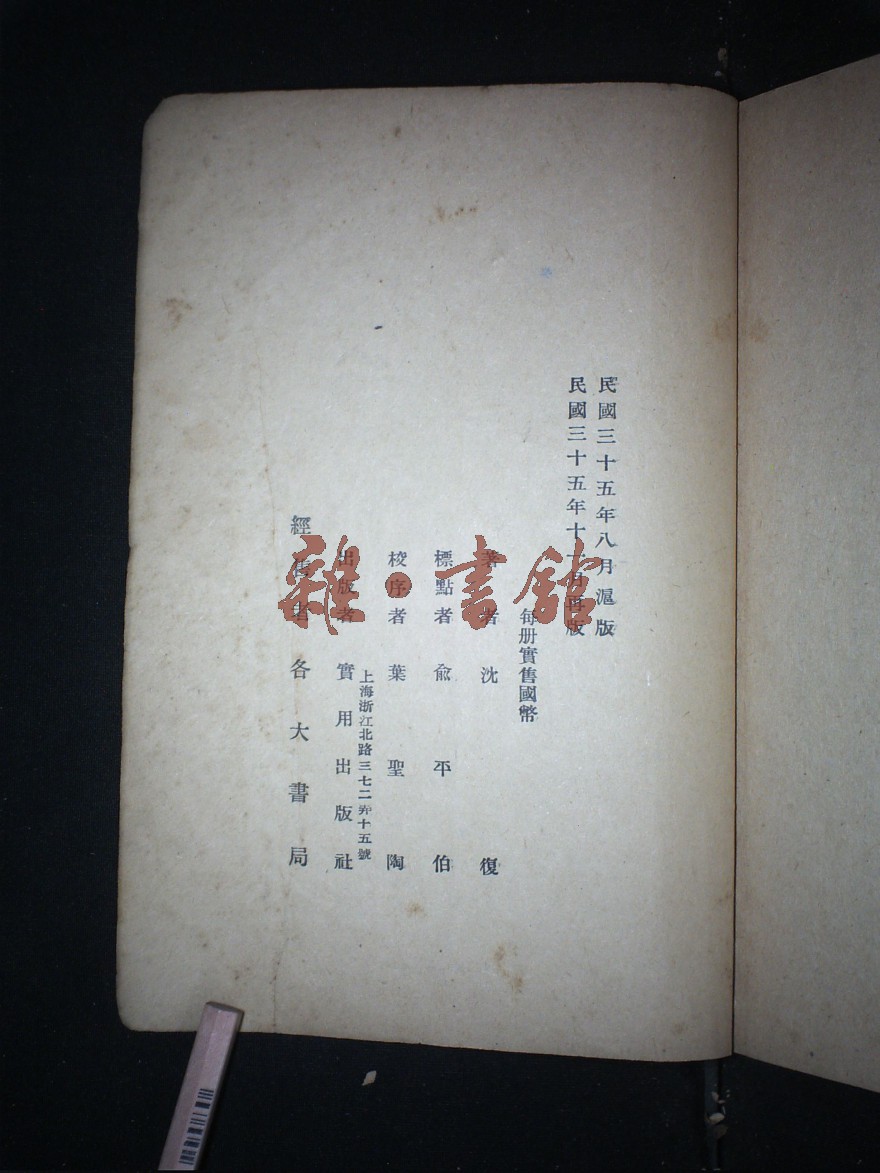 民國三十五年八月滬版
民國三十五年十一月再版
每册實售國幣
著者沈復
標點者俞平伯
校序者葉聖陶
上海浙江北路三七二弄十五號
出版者實用出版社
經售者各大書局
雜·書館